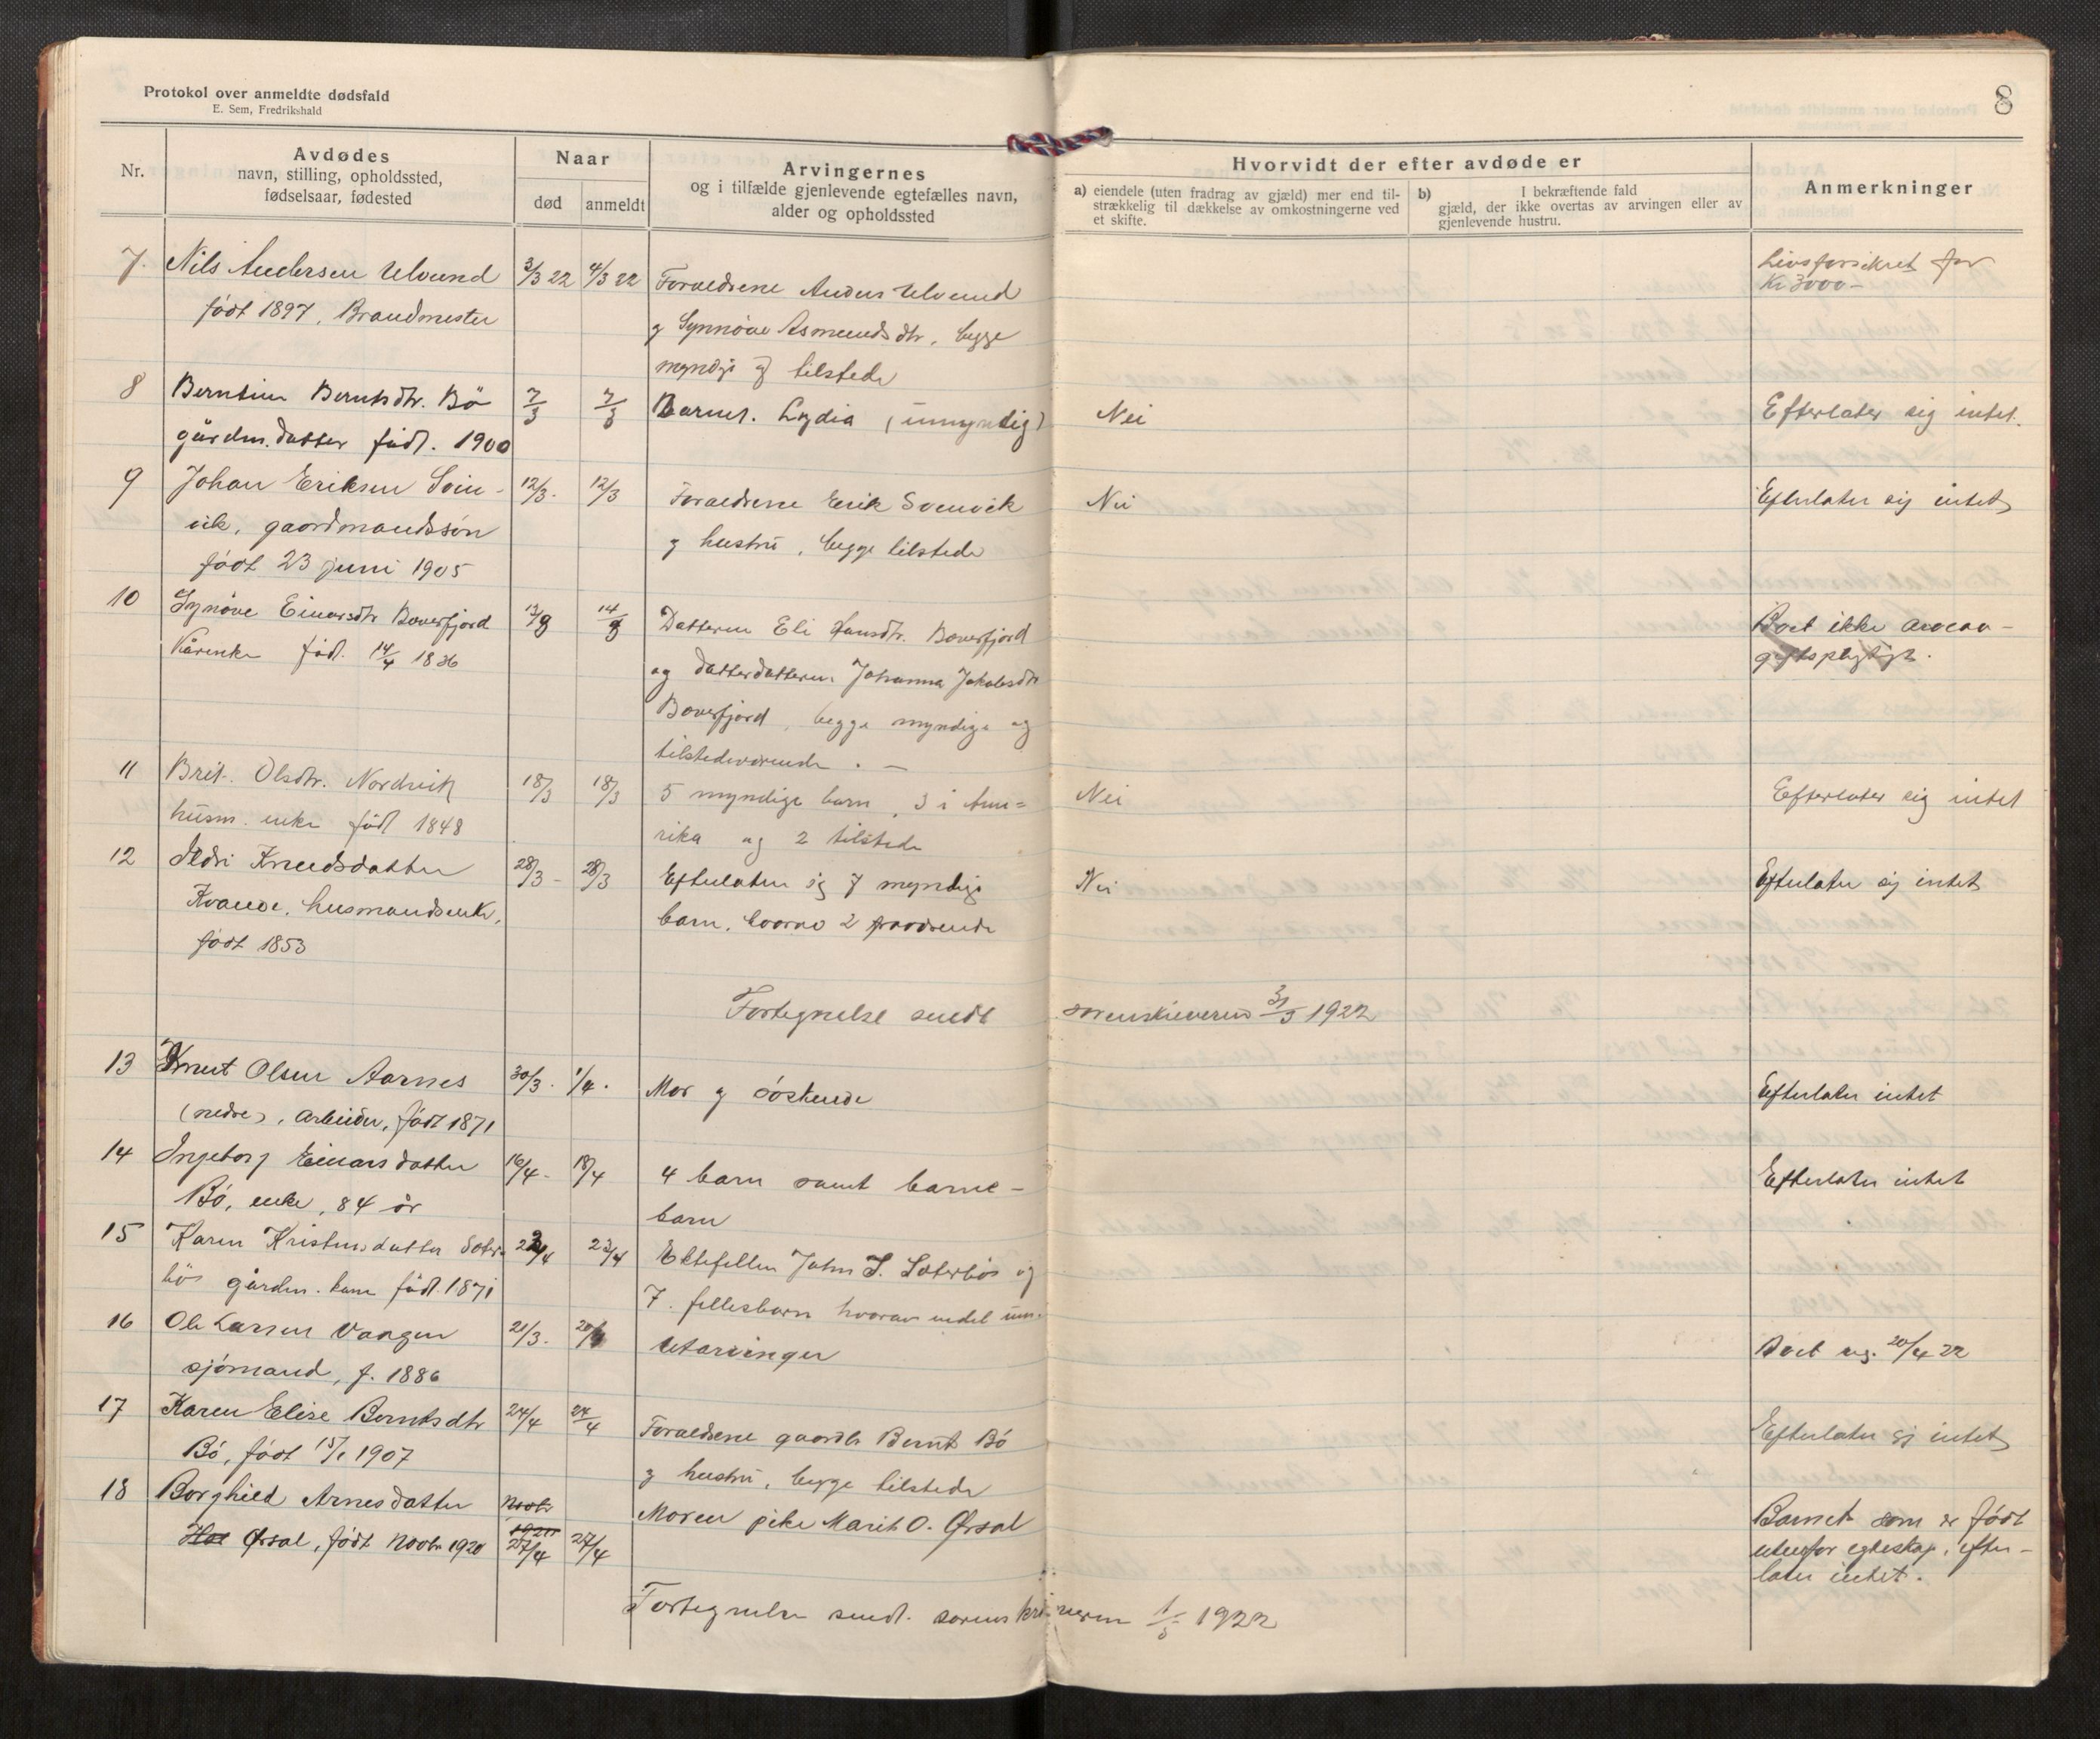 Protokol over anmeldte dødsfald
E. Sem, Fredrikshald
8
Nr.
Avdødes
navn, stilling, opholdssted,
fødselsaar, fødested
Naar
død
anmeldt
Arvingernes
og i tilfælde gjenlevende egtefælles navn,
alder og opholdssted
Hvorvidt der efter avdøde er
a) eiendele (uten fradrag av gjæld) mer end til-
strækkelig til dækkelse av omkostningerne ved
et skifte.
b) I bekræftende fald
gjæld, der ikke overtas av arvingen eller av
gjenlevende hustru.
Anmerkninger
7. Nils Andersen Ulvund 3/3 22 4/3 22 Foraeldrene Anders Ulvund Livsforsikret for
født 1897, Brandmester Kr 3000-
g Synnöve Asmundsdtr, begge
myndige og tilstede
8 Berntine Berntsdtr. Bö 7/3 7/3 Barnet. Lydia (umyndig) Nei Efterlater sig intet.
gårdm. datter födt. 1900
9 Johan Eriksen Svin- 12/3. 12/3 Foraeldrene Erik Svinvik Nei Efterlater sig intet
vik, gaardmandssön g hustru, begge tilstede
født 23 juni 1905
10 Synöve Einarsdtr Bæverfjord 13/3 14/3 Datteren Eli Hansdtr. Bæverfjord Boet ikke arveav-
Kårenke född. 14/4 1836 giftspligtigt.
og datterdatteren. Johanna Jakobsdtr
Bæverfjord, begge myndige og
tilstedeværende. -
11 Brit. Olsdtr. Nordvik 18/3 18/3 5 myndige barn, 3 i Ame= Nei Efterlater sig intet
husm. enke födt 1848 rika og 2 tilstede
12 Ildri Knudsdatter 28/3- 28/3 Efterlater sig 7 myndige Nei Efterlater sig intet
Kvande, husmandsenke, barn, hvorav 2 fraværende
født 1853
Fortegnelse sendt sorenskriveren 31/3 1922
13 Knut Olsen Aarnes 30/3. 1/4. Mor g söskende Efterlater intet
(nedre), arbeider, født 1871
14 Ingeborg Einarsdatter 16/4- 18/4 4 barn samt barne- Efterlater intet
Bö, enke, 84 år barn
15 Karen Kristensdatter Sæter- 22/4 22/4 Ektefellen John I. Sæterbö og
bö gårdm. kone födt. 1871 7. fellesbarn hvorav endel um.
16 Ole Larsen Vaagen 21/3. 20/4 Utarvinger Boet reg. 20/4 22
sjömand, f. 1886
17 Karen Elise Berntsdtr 24/4 24/4 Foraeldrene gaardbr Bernt Bö Efterlater sig intet
Bö, født 15/1 1907 g hustru, begge tilstede
18 Borghild Arnesdatter Novbr Moren pike Marit O. Ørsal Barnet som er født
Ørsal, født Novbr 1920 1920 27/4 27/4 utenfor egteskap, efter-
later intet.
Fortegnelse sendt. sorenskriveren 1/5 1922